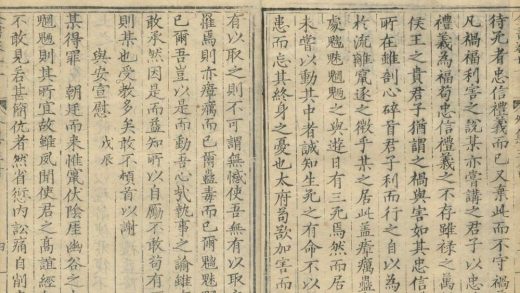 待死者忠信禮義而已又棄此而不守禍
凡禍福利害之說某亦嘗講之君子以忠
禮義為福苟忠信禮義之不存雖祿之萬
侯王之貴君子猶謂之禍與害如其忠信
所在雖剖心碎首君子利而行之自以為
於流離竄逐之微乎某之居此蓋瘴癘蠱
處魑魅魍魎之與遊日有三死焉然而居
未嘗以動其中者誠知生死之有命不以
患而忘其終身之憂也太府苟欲加害而
有以取之則不可謂無憾使吾無有以取
罹焉則亦瘴癘而已爾蠱毒而已爾魑魅
已爾吾豈以是而動吾心哉執事之論雖
敢承然因是而益知所以自勵不敢苟有
則某也受教多矣敢不頓首以謝
與安宣慰 戊辰
某得罪 朝廷而來惟竄伏陰崖幽谷之
魑魅則其所宜故雖夙聞使君之高誼經
不敢見若甚簡伉者然省愆內訟痛自削